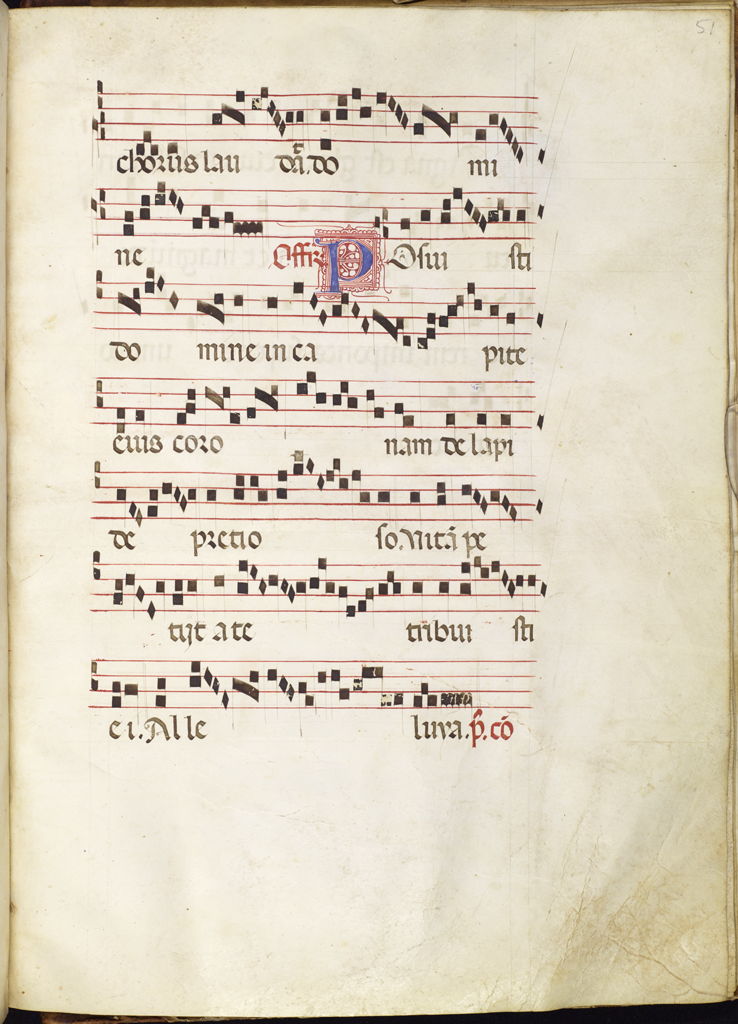 51
chorus lau dāt. do mi
ne Offr̄ POsui sti
do mine in ca pite
eius coro nam de lapi
de pretio so. Vitā pe
tijt a te tribui sti
e i. Al le luya. p̄. cō